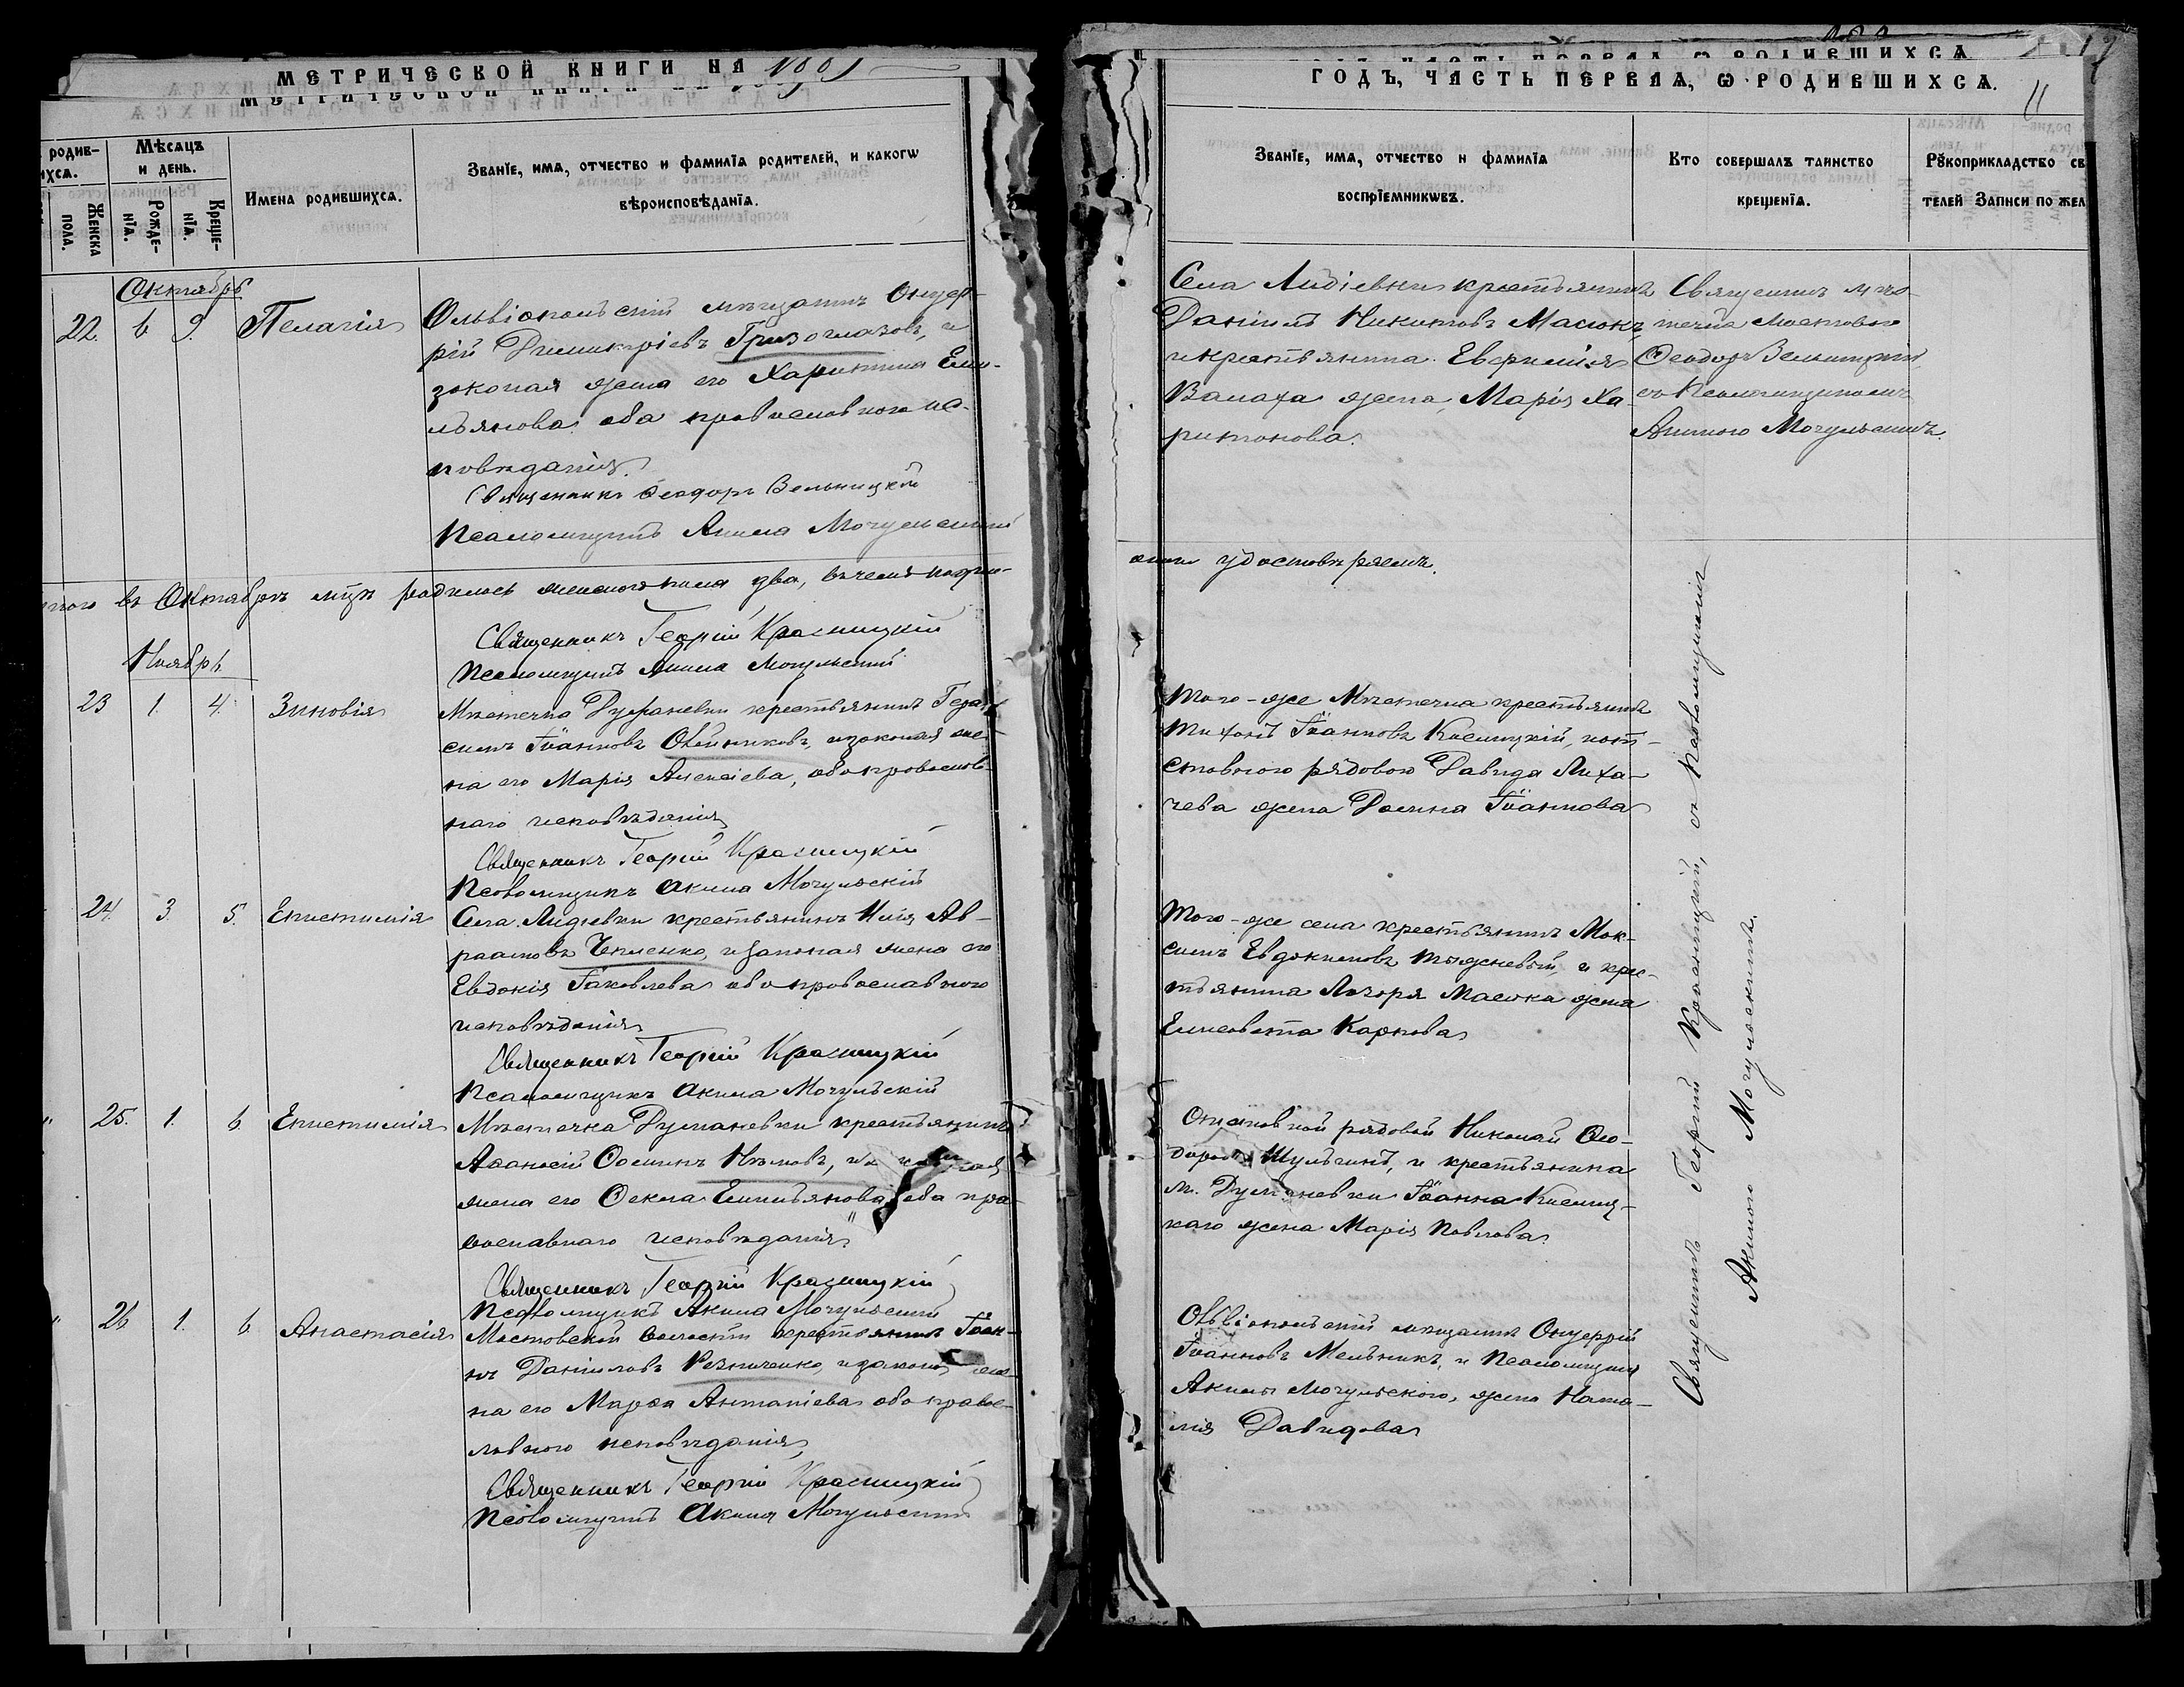 МЕТРИЧЕСКОЙ КНИГИ НА
родив-
ихсѧ.
Женска
пола.
Мѣсѧцъ
и день.
Рожде-
нїѧ.
Креще-
нїѧ.
Имена родившихсѧ.
Званїе, имѧ, отчество и фамилїѧ родителей, и какогѡ
вѣроисповѣданїѧ.
Октябрь
22. 6 9. Пелагія
Ольвіопольскій мѣщанинъ Онуф-
рій Димитріевъ Гризоглазовъ, и
законая жена его Харитина Еми-
льянова оба православного ис-
повѣданія.
Священникъ Ѳеодоръ Вельницкій
Псаломщикъ Акила Могульскій
въ Октябрѣ мцѣ родилось женскаго пола два, въ чемъ
Священникъ Георгій Красницкій
Псаломщикъ Акила Могульскій
Ноябрь
23 1. 4. Зиновія
Мѣстечка Думаневки крестьянинъ Гера-
симъ Іоанновъ Олѣйниковъ, изаконая же-
на его Марія Алексіева, оба православ-
наго исповѣданія
Священникъ Георгій Красницкій
Псаломщикъ Акила Могульскій
24. 3. 5. Епистимія
Села Лидіевки крестьянинъ Илія Ав-
раамовъ Чепленко, изаконая жена его
Евдокія Іаковлева оба православного
исповѣданія
Священникъ Георгій Красницкій
Псаломщикъ Акила Могульскій
25. 1. 6. Епистимія
Мѣстечка Думаневки крестьянинъ
Аѳанасій Ѳоминъ Нѣмовъ,
жена его Ѳекла Емильянова, оба пра-
вославнаго исповѣданія
Священникъ Георгій Красницкій
Псаломщикъ Акила Могульскій
26 1. 6. Анастасія
Мостовской волости крестьянинъ Іоан-
нъ Даніиловъ Резниченко, изаконая же-
на его Марѳа Антоніева оба правос-
лавного исповѣданія,
Священникъ Георгій Красницкій
Псаломщикъ Акила Могульскій
ГОДЪ, ЧАСТЬ ПЕРВАѦ, Ѡ РОДИВШИХСѦ.
11
Званїе, имѧ, отчество и фамилїѧ
воспрїемникѡвъ.
Кто совершалъ таинство
крещенїѧ.
Рꙋкоприкладство св
телей Записи по жел
Села Лидіевки крестьянинъ
Даніилъ Никитовъ Масюкъ,
и крестьянина Евфимія
Валаха жена, Марія Ха-
ритонова.
Священникъ мѣс-
течка Мостового
Ѳеодоръ Вельницкій,
съ Псаломщикомъ
Акилою Могульскимъ.
удостовѣряемъ.
Того-же Мѣстечка крестьянинъ
Тихонъ Іоанновъ Кислицкій, и от-
ставного рядового Давида Лиха-
чева жена Домна Іоаннова
Того-же села крестьянинъ Мак-
симъ Евдокимовъ Тяжневый, и крес-
тьянина Лазоря Масюка жена
Елисовета Карпова
Отставной рядовой Николай Ѳео-
доровъ Шульгинъ, и крестьянина
м. Думаневки Іоанна Кислиц-
каго жена Марія Павлова.
Ольвіопольскій мѣщанинъ Онуфрій
Іоанновъ Мельникъ, и Псаломщика
Акилы Могульского, жена Ната-
лія Давидова
Священникъ Георгій Красницкій, съ Псаломщикомъ
Акилою Могульскимъ.